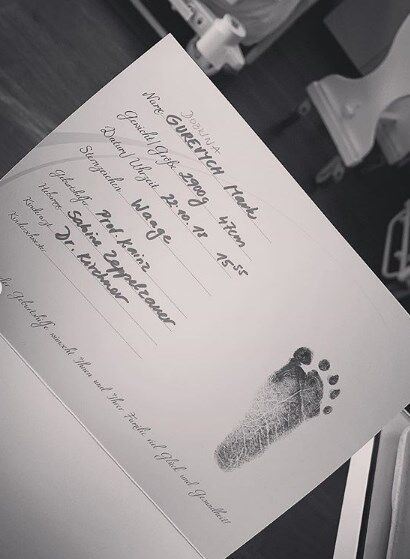 Dorina
Name GUREVYCH Mark
Gewicht/Größe 2900g 47cm
Datum/Uhrzeit 22.10.18 15⁵⁵
Sternzeichen Waage
Geburtshilfe Prof. Kainz
Hebamme Sabina Zeppelzauer
Kinderarzt Dr. Kirchner
Kinderschwester
Die Geburtshilfe wünscht Ihnen und Ihrer Familie viel Glück und Gesundheit!